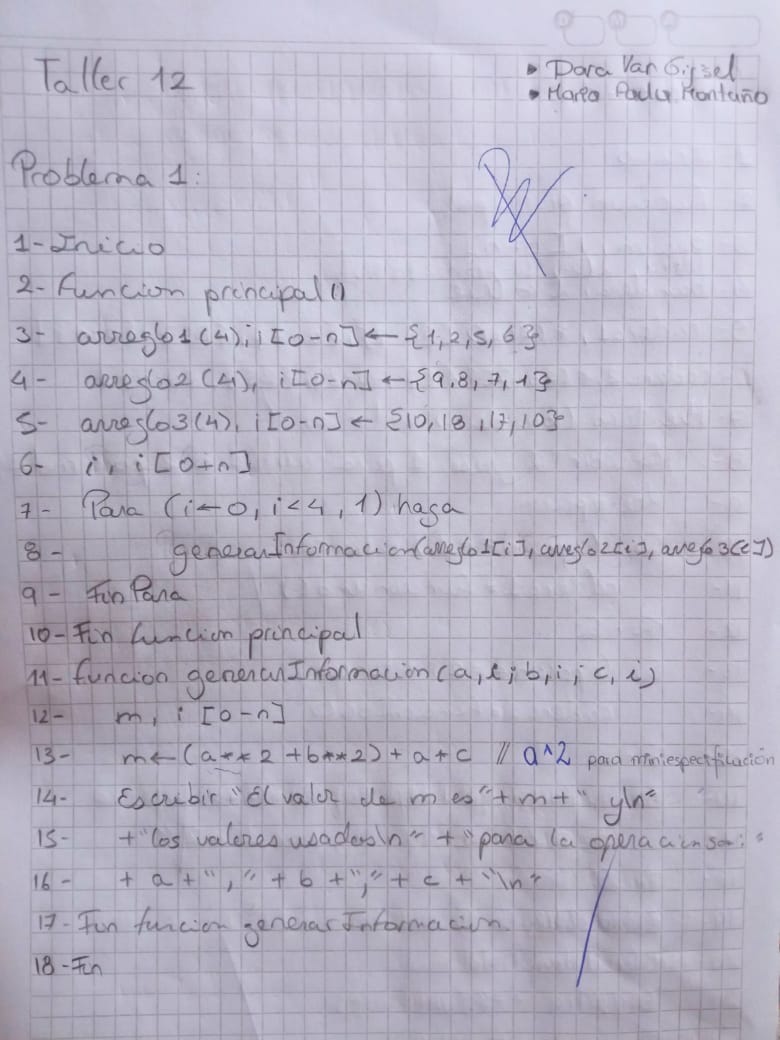 Taller 12
• Dora Van Gijsel
• Maria Paula Montaño
Problema 1:
1- Inicio
2- Funcion principal()
3- arreglo1(4), i [0-n] ← {1,2,5,6}
4- arreglo2(4), i[0-n] ← {9,8,7,1}
5- arreglo3(4), i[0-n] ← {10,18,17,10}
6- i, i [0-n]
7- Para (i←0, i<4, 1) haga
8- generarInformacion(arreglo1[i], arreglo2[i], arreglo3[i])
9- Fin Para
10- Fin funcion principal
11- funcion generarInformacion (a, i; b, i; c, i)
12- m, i [0-n]
13- m← (a**2 +b**2) + a + c // a^2 para miniespecificación
14- Escribir "El valor de m es"+m+" y\n"
15- +"los valores usados\n" + "para la operacin son:"
16- + a +"," + b +"," + c + "\n"
17- Fin funcion generarInformacion
18- Fin